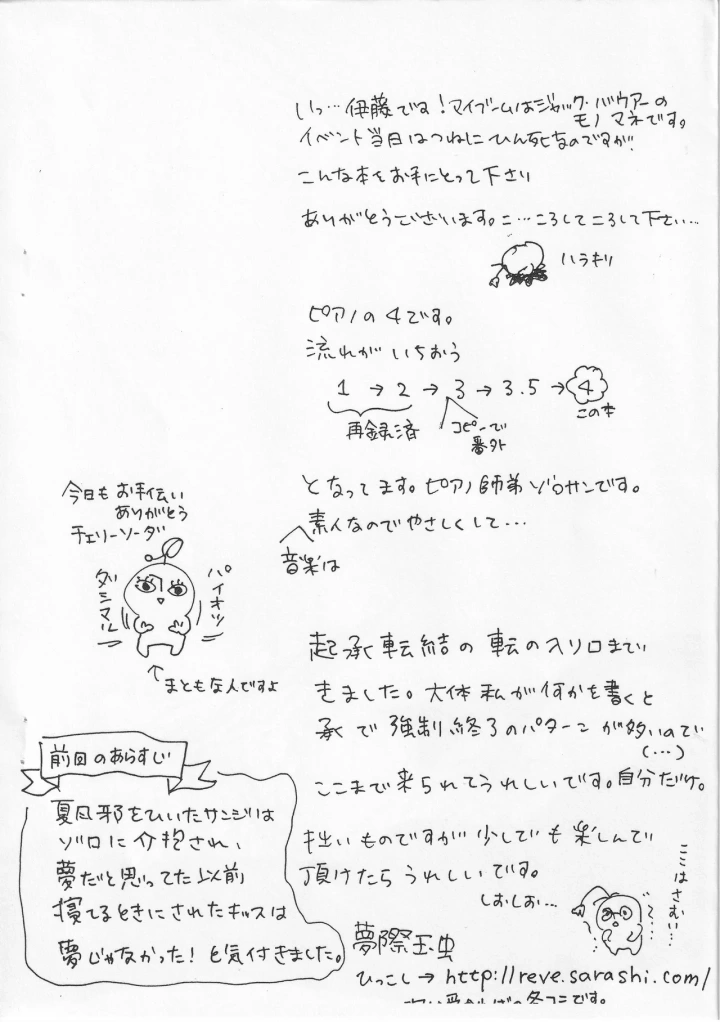 いっ…伊藤です！マイブームはジャック・バウアーの
モノマネです。
イベント当日はつねにひん死なのですが
こんな本をお手にとって下さり
ありがとうございます。こ…ころしてころして下さい…
ハラキリ
ピアノの4です。
流れがいちおう
1→2→3→3.5→4
再録済
コピーで
番外
この本
となってます。ピアノ師弟ゾロサンです。
素人なのでやさしくして…
音楽は
今日もお手伝い
ありがとう
チェリーソーダ
パイオツ
ダシマル
↑まともな人ですよ
起承転結の転の入り口まで
きました。大体私が何かを書くと
承で強制終了のパターンが多いので
(…)
ここまで来られてうれしいです。自分だけ。
拙いものですが少しでも楽しんで
頂けたらうれしいです。
しおしお…
ここはさむい…
夢際玉虫
ひっこし→http://reve.sarashi.com/
前回のあらすじ
夏風邪をひいたサンジは
ゾロに介抱され、
夢だと思ってた以前
寝てるときにされたキッスは
夢じゃなかった！と気付きました。